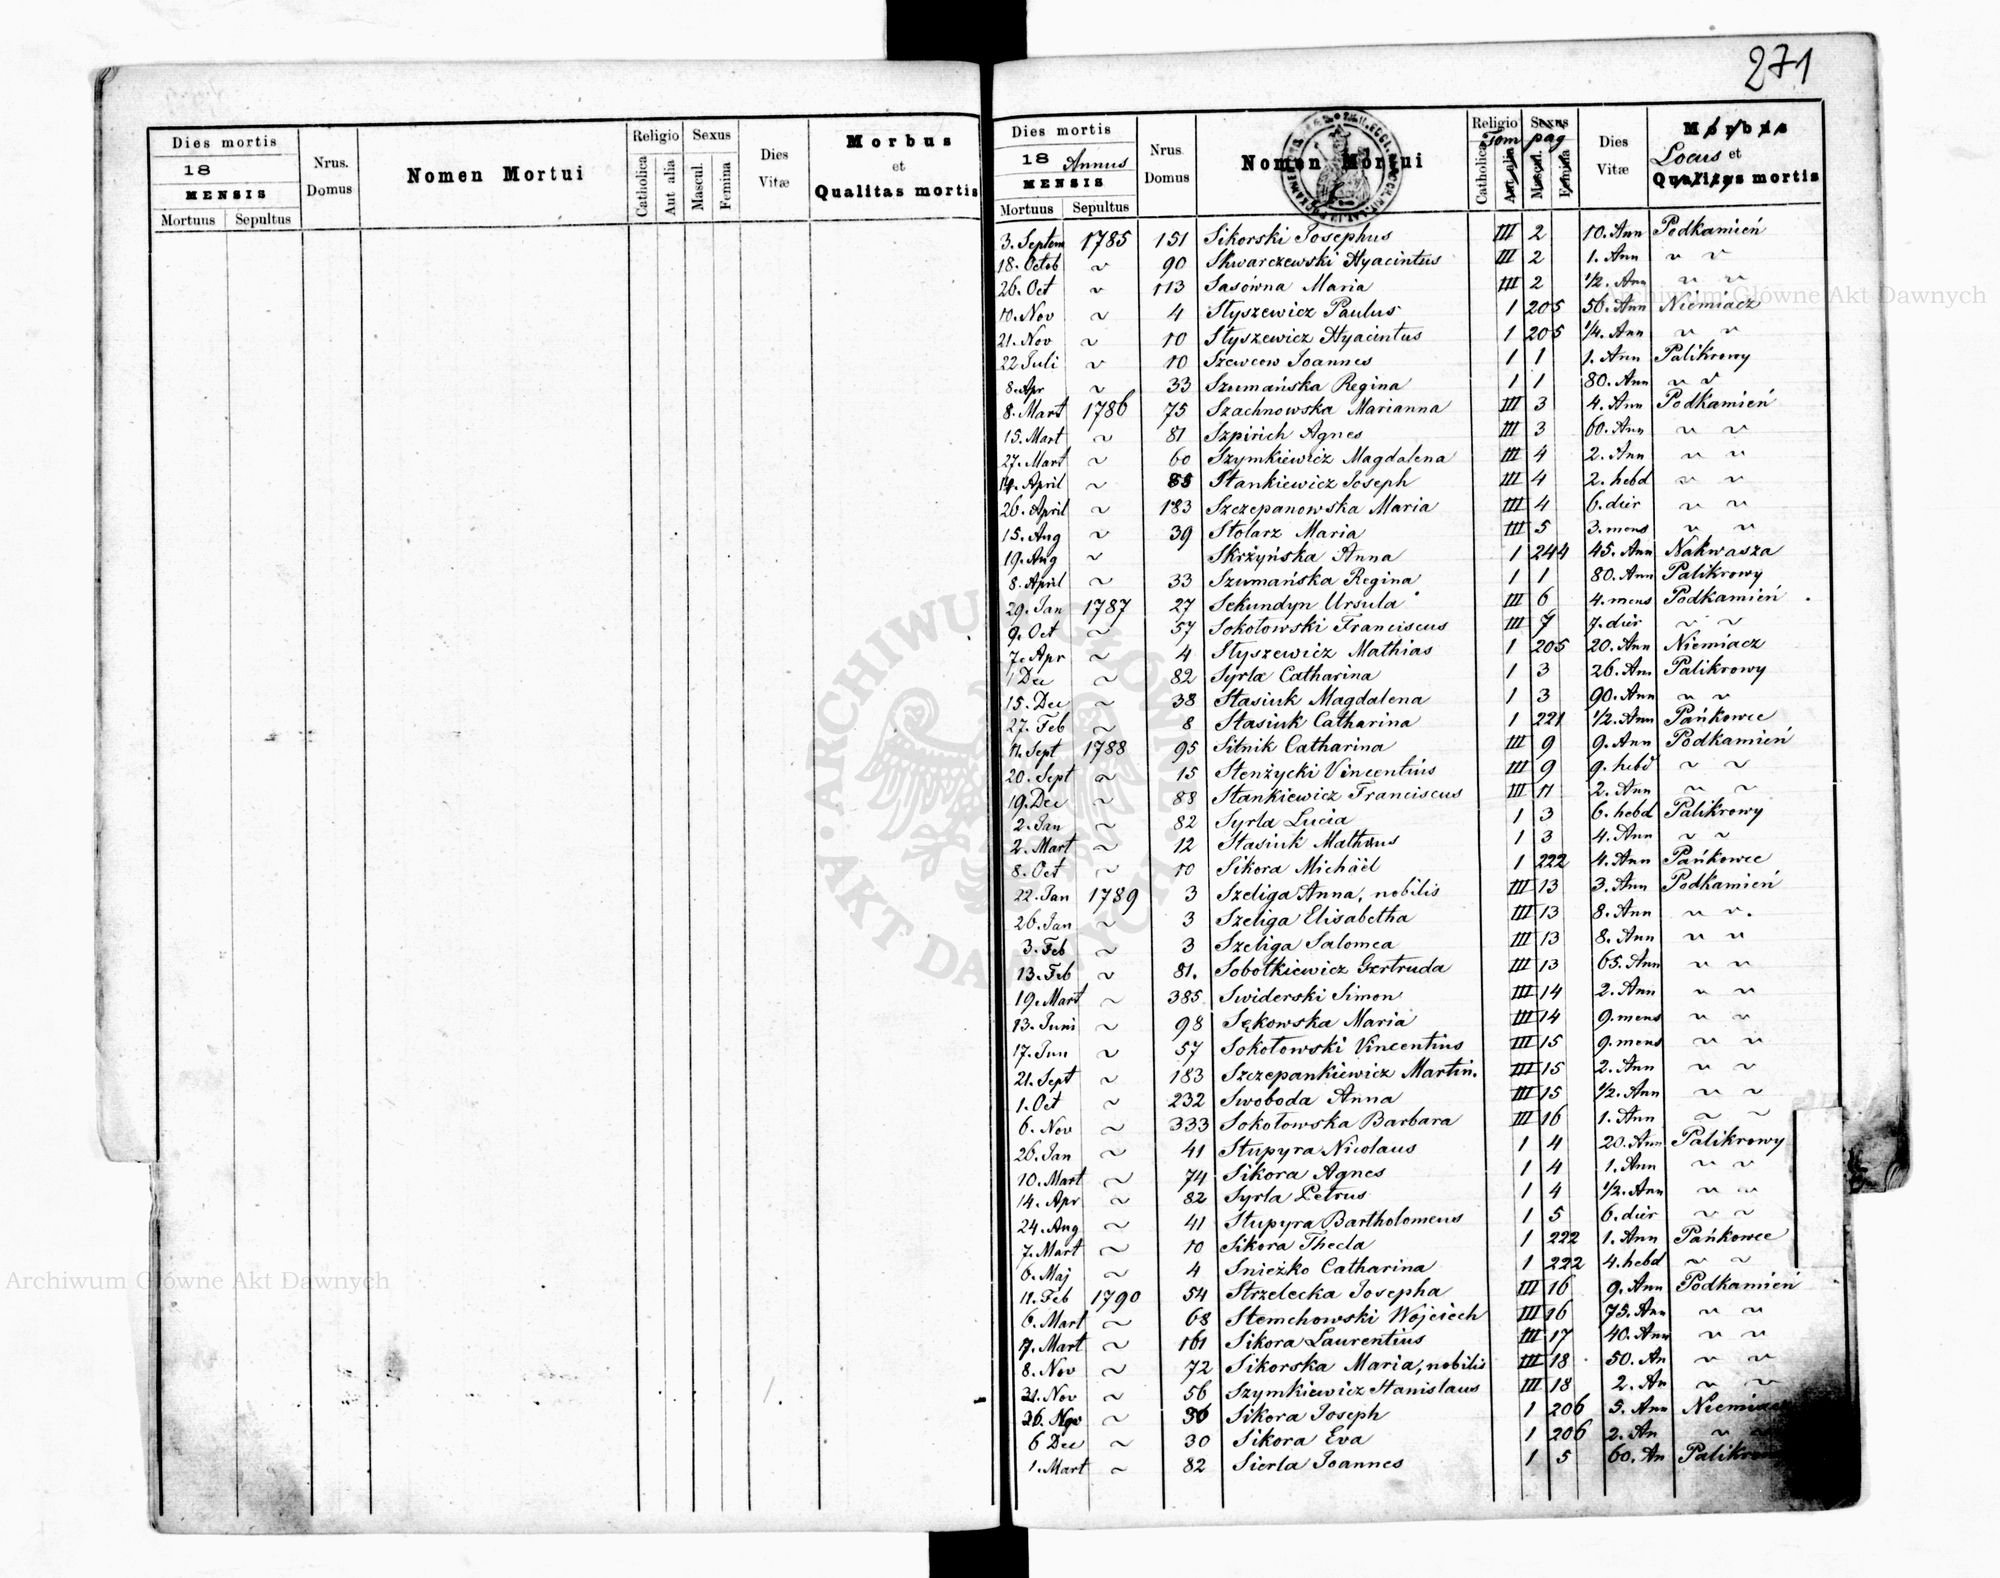 271
Dies mortis
18
MENSIS
Mortuus Sepultus
Nrus. Domus
Nomen Mortui
Religio
Catholica
Aut alia
Sexus
Mascul.
Femina
Dies Vitæ
Morbus
et
Qualitas mortis
Dies mortis
18 Annus
MENSIS
Mortuus Sepultus
Nrus Domus
Nomen Mortui
Religio
Tom
Catholica
Aut alia
Sexus
pag
Mascul.
Femina
Dies Vitæ
Morbus
Locus et
Qualitas mortis
3. Septem 1785 151 Sikorski Josephus III 2 10. Ann Podkamień
18. Octob ~ 90 Skwarczewski Hyacintus III 2 1. Ann ~ ~
26. Oct ~ 113 Sasówna Maria III 2 1/2. Ann ~ ~
10. Nov ~ 4 Styszewicz Paulus 1 205 56. Ann Niemiacz
21. Nov ~ 10 Styszewicz Hyacintus 1 205 1/4. Ann ~ ~
22 Juli ~ 10 Szewcow Joannes 1 1 1. Ann Palikrowy
8. Apr ~ 33 Szumańska Regina 1 1 80. Ann ~ ~
8. Mart 1786 75 Szachnowska Marianna III 3 4. Ann Podkamień
15. Mart ~ 81 Szpirich Agnes III 3 60. Ann ~ ~
27. Mart ~ 60 Szymkiewicz Magdalena III 4 2. Ann ~ ~
14. April ~ 88 Stankiewicz Joseph III 4 2. hebd ~ ~
26. April ~ 183 Szczepanowska Maria III 4 6. dier ~ ~
15. Aug ~ 39 Stolarz Maria III 5 3. mens ~ ~
19. Aug ~ Skrżyńska Anna 1 244 45. Ann Nakwasza
8. April ~ 33 Szumańska Regina 1 1 80. Ann Palikrowy
29. Jan 1787 27 Sekundyn Ursula III 6 4. mens Podkamień
9. Oct ~ 57 Sokołowski Franciscus III 7 7. dier ~ ~
7. Apr ~ 4 Styszewicz Mathias 1 205 20. Ann Niemiacz
1 Dec ~ 82 Syrla Catharina 1 3 26. Ann Palikrowy
15. Dec ~ 38 Stasiuk Magdalena 1 3 90. Ann ~ ~
27. Feb ~ 8 Stasiuk Catharina 1 221 1/2. Ann Pańkowce
11. Sept 1788 95 Sitnik Catharina III 9 9. Ann Podkamień
20. Sept ~ 15 Stenżycki Vincentius III 9 9. hebd ~ ~
19. Dec ~ 88 Stankiewicz Franciscus III 11 2. Ann ~ ~
2. Jan ~ 82 Syrla Lucia 1 3 6. hebd Palikrowy
2. Mart ~ 12 Stasiuk 1 3 4. Ann ~ ~
8. Oct ~ 10 Sikora Michäel 1 222 4. Ann Pańkowce
22. Jan 1789 3 Szeliga Anna, nobilis III 13 3. Ann Podkamień
26. Jan ~ 3 Szeliga Elisabetha III 13 8. Ann ~ ~.
3. Feb ~ 3 Szeliga Salomea III 13 8. Ann ~ ~
13. Feb ~ 81. Sobotkiewicz Gertruda III 13 65. Ann ~ ~
19. Mart ~ 385 Swiderski Simon III 14 2. Ann ~ ~
13. Juni ~ 98 Sękowska Maria III 14 9. mens ~ ~
17. Jun ~ 57 Sokołowski Vincentius III 15 9. mens ~ ~
21. Sept ~ 183 Szczepankiewicz Martin. III 15 2. Ann ~ ~
1. Oct ~ 232 Swoboda Anna III 15 1/2. Ann ~ ~
6. Nov ~ 333 Sokołowska Barbara III 16 1. Ann ~ ~
26. Jan ~ 41 Stupyra Nicolaus 1 4 20. Ann Palikrowy
10. Mart ~ 74 Sikora Agnes 1 4 1. Ann ~ ~
14. Apr ~ 82 Syrla Petrus 1 4 1/2. Ann ~ ~
24. Aug ~ 41 Stupyra Bartholomeus 1 5 6. dier ~ ~
7. Mart ~ 10 Sikora Thecla 1 222 1. Ann Pańkowce
6. Maj ~ 4 Snieżko Catharina 1 222 4. hebd ~ ~
11. Feb 1790 54 Strzelecka Josepha III 16 9. Ann Podkamień
6. Mart ~ 68 Stemchowski Wojciech III 16 75. Ann ~ ~
7. Mart ~ 161 Sikora Laurentius III 17 40. Ann ~ ~
8. Nov ~ 72 Sikorska Maria, nobilis III 18 50. An ~ ~
21. Nov ~ 56 Szymkiewicz Stanislaus III 18 2. An ~ ~
26. Nov ~ 36 Sikora Joseph 1 206 5. Ann
6 Dec ~ 30 Sikora Eva 1 206 2. An ~ ~
1. Mart ~ 82 Sierla Joannes 1 5 60. An
Archiwum Główne Akt Dawnych
Archiwum Główne Akt Dawnych
ARCHIWUM GŁÓWNE AKT DAWNYCH